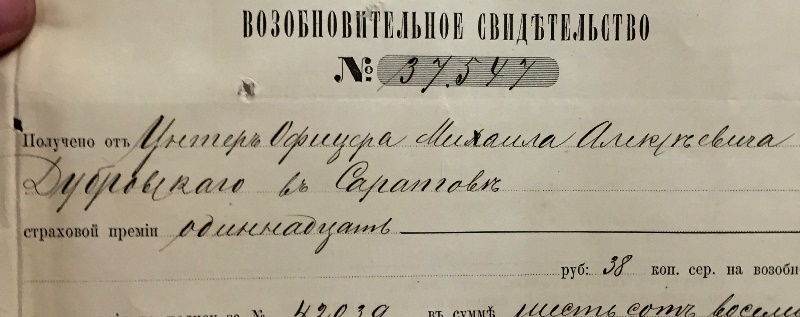 ВОЗОБНОВИТЕЛЬНОЕ СВИДѢТЕЛЬСТВО
№ 37.547
Получено отъ Унтеръ Офицера Михаила Алексѣевича
Дубровскаго въ Саратовѣ
страховой преміи одиннадцать
руб: 38 коп. сер. на возобн
за № 42039 въ суммѣ шестьсотъ восемь